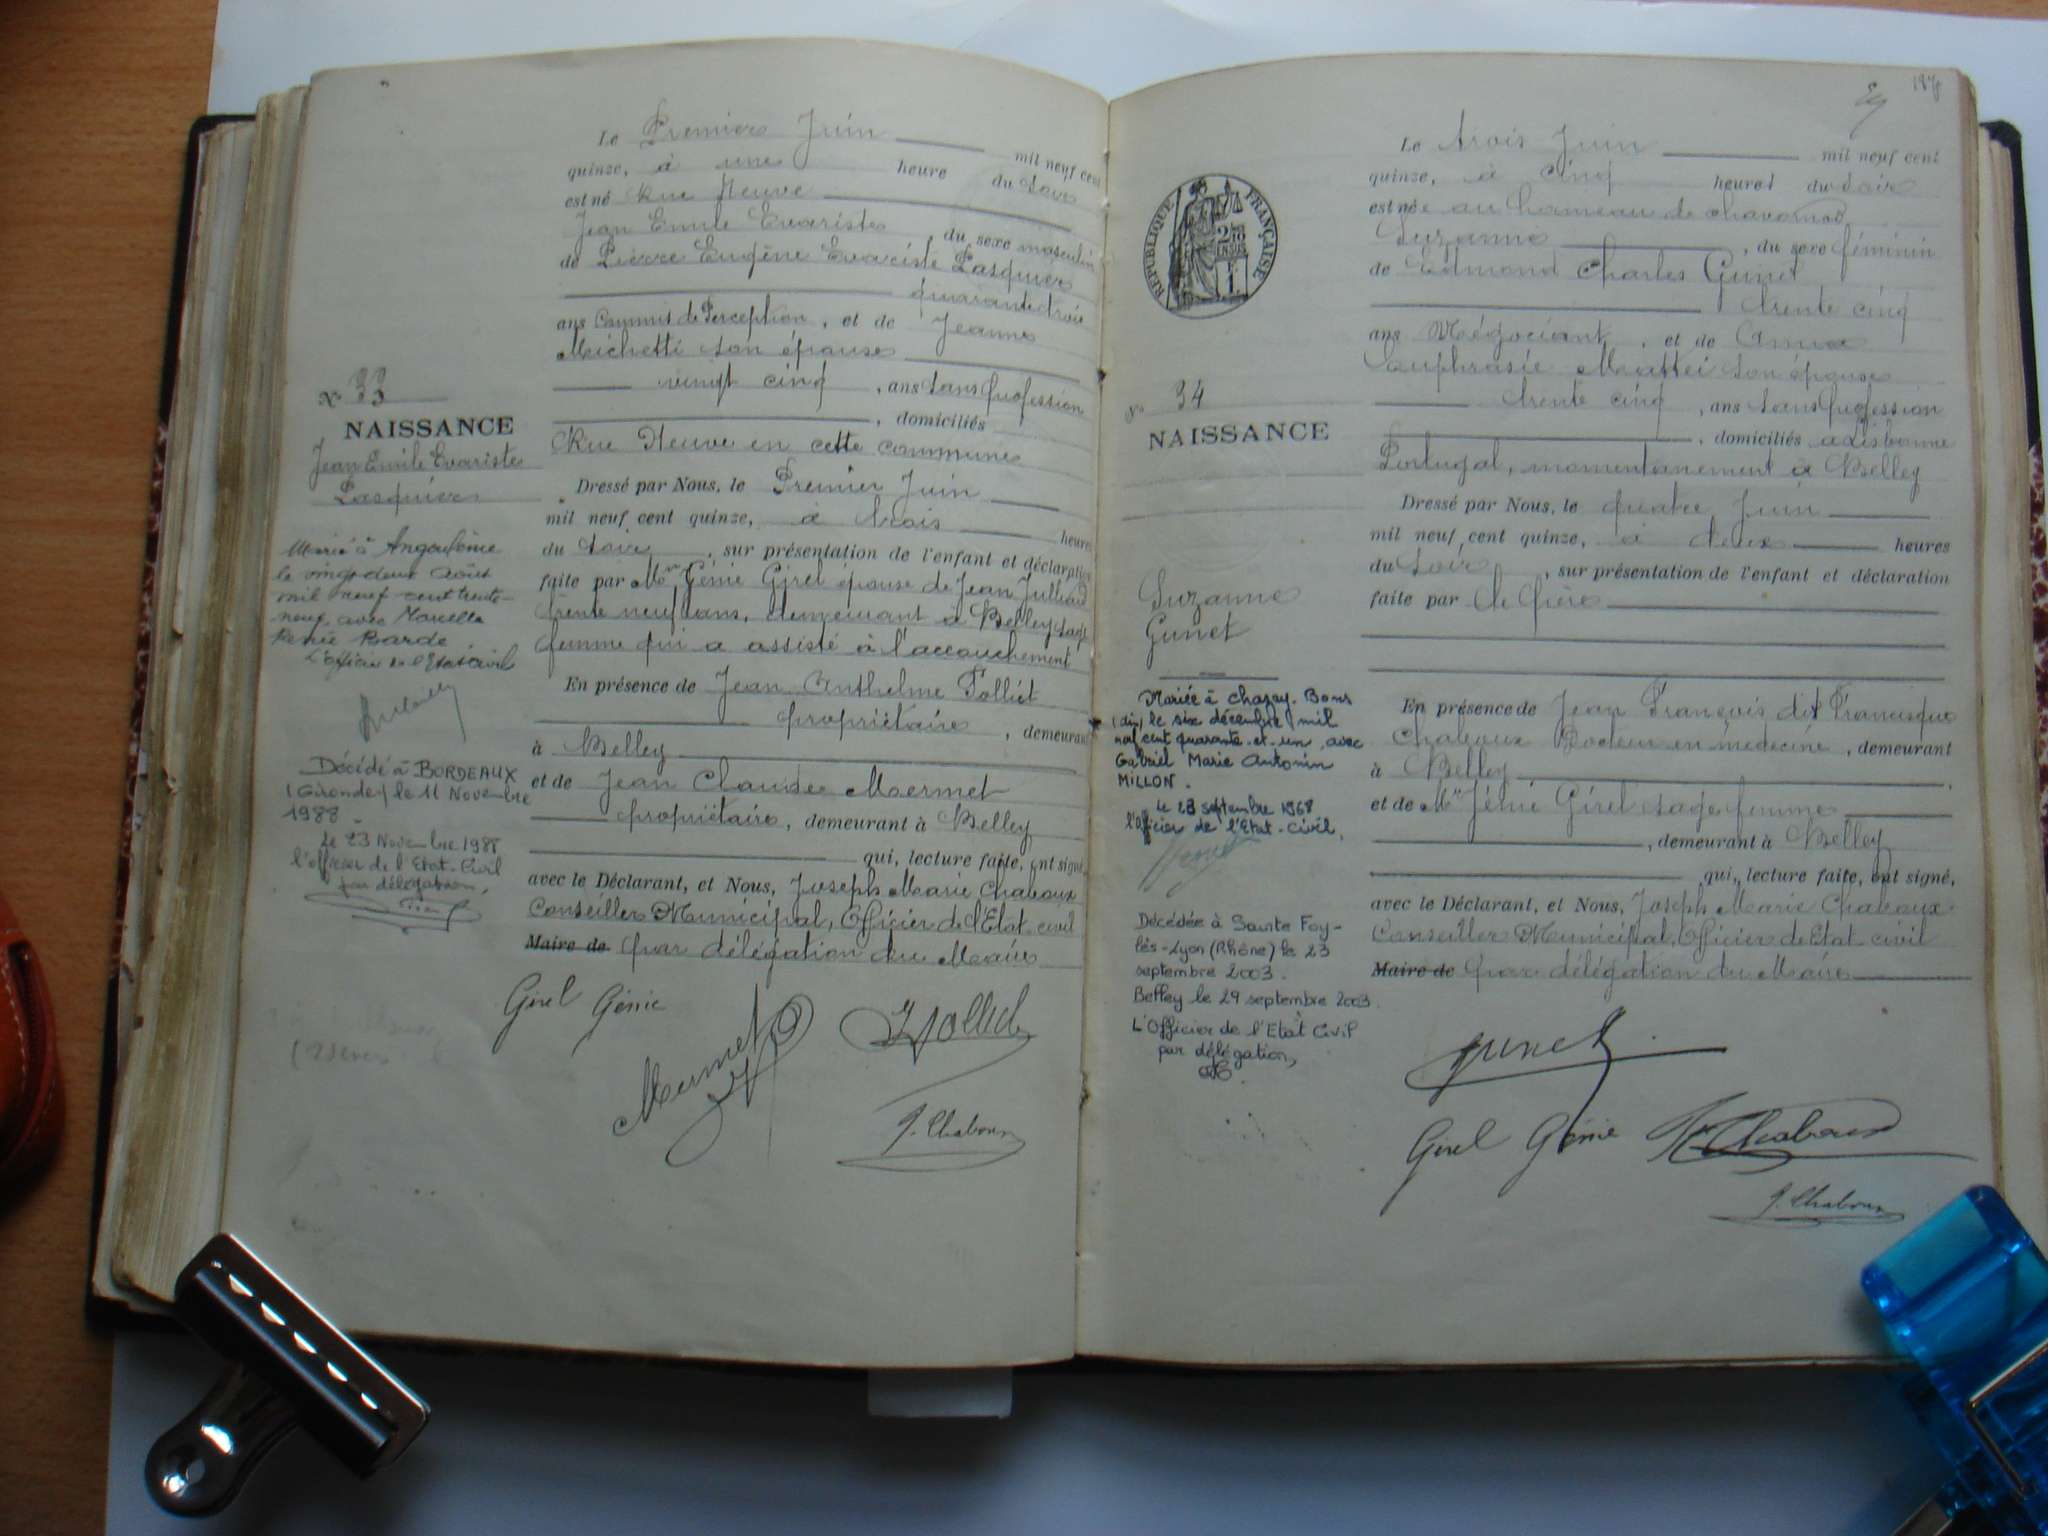 Le Premier Juin mil neuf cent
quinze, à une heure du Soir
est né Rue Neuve
Jean Emile Evariste, du sexe masculin
de Pierre Eugène Evariste Pasquier
quarante trois
ans Commis de Perception, et de Jeanne
Michetti son épouse
vingt cinq, ans Sans profession
, domiciliés
Rue Neuve en cette commune
Dressé par Nous, le Premier Juin
mil neuf cent quinze, à trois heures
du Soir, sur présentation de l'enfant et déclaration
faite par Me Génie Girel épouse de Jean Julliand
trente neuf ans, demeurant à Belley sage
femme qui a assisté à l'accouchement
En présence de Jean Anthelme Polliet
propriétaire, demeurant
à Belley
et de Jean Claude Mermet
propriétaire, demeurant à Belley
qui, lecture faite, ont signé
avec le Déclarant, et Nous, Joseph Marie Chaboux
Conseiller Municipal, Officier de l'Etat civil
Maire de par délégation du Maire
Girel Génie
Mermet
Polliet
J. Chaboux
No 33
NAISSANCE
Jean Emile Evariste
Pasquier
Marié à Angoulême
le vingt deux Août
mil neuf cent trente-
neuf, avec
Renée Barde
L'officier de l'Etat civil
Décédé à BORDEAUX
(Gironde) le 11 Novembre
1988.
Le 23 Novembre 1988
l'officier de l'Etat-Civil
par délégation,
Le trois Juin mil neuf cent
quinze, à cinq heures du Soir
est née au hameau de
Suzanne, du sexe féminin
de Edmond Charles Gunet
trente cinq
ans Négociant, et de Anna
Euphrasie Mattei son épouse
trente cinq, ans Sans profession
, domiciliés à Lisbonne
Portugal, momentanement à Belley
Dressé par Nous, le quatre Juin
mil neuf cent quinze, à deux heures
du Soir, sur présentation de l'enfant et déclaration
faite par le Père
En présence de Jean François dit Francisque
Chaboux Docteur en médecine, demeurant
à Belley
et de Me Génie Girel sage femme
, demeurant à Belley
qui, lecture faite, ont signé,
avec le Déclarant, et Nous, Joseph Marie Chaboux
Conseiller Municipal, Officier de Etat civil
Maire de par délégation du Maire
Gunet
Girel Génie
Chaboux
J. Chaboux
REPUBLIQUE FRANÇAISE
No 34
NAISSANCE
Suzanne
Gunet
Mariée à Chazey-Bons
(Ain) le six décembre mil
neuf cent quarante-et-un avec
Gabriel Marie Antonin
MILLON.
Le 23 septembre 1968
l'Officier de l'Etat-Civil,
Décédée à Sainte Foy-
lès-Lyon (Rhône) le 23
septembre 2003.
Belley le 29 septembre 2003.
L'Officier de l'Etat Civil
par délégation,